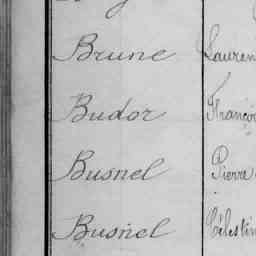 Brune Lauren
Budor Françoi
Busnel Pierre
Busnel Célestin